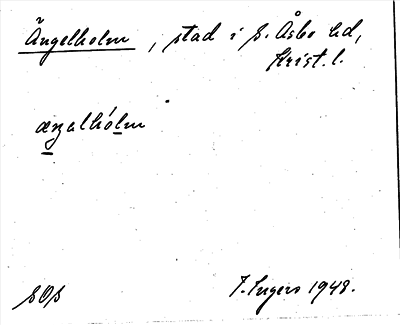 Ängelholm, stad i S. Åsbo hd,
Krist. l.
æŋəlhólm
SOS
T. Ingers 1948.